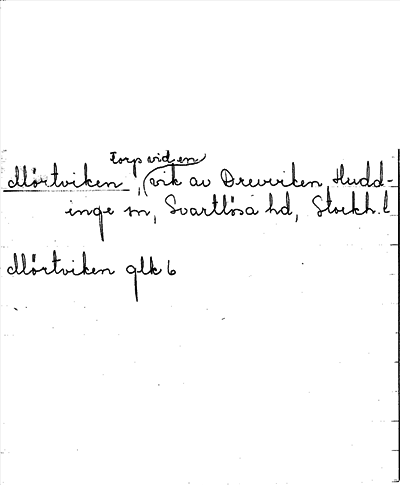 Torp vid en
Mörtviken, vik av Drevviken Hudd-
inge sn, Svartlösa hd, Stockh. l
Mörtviken glk 6